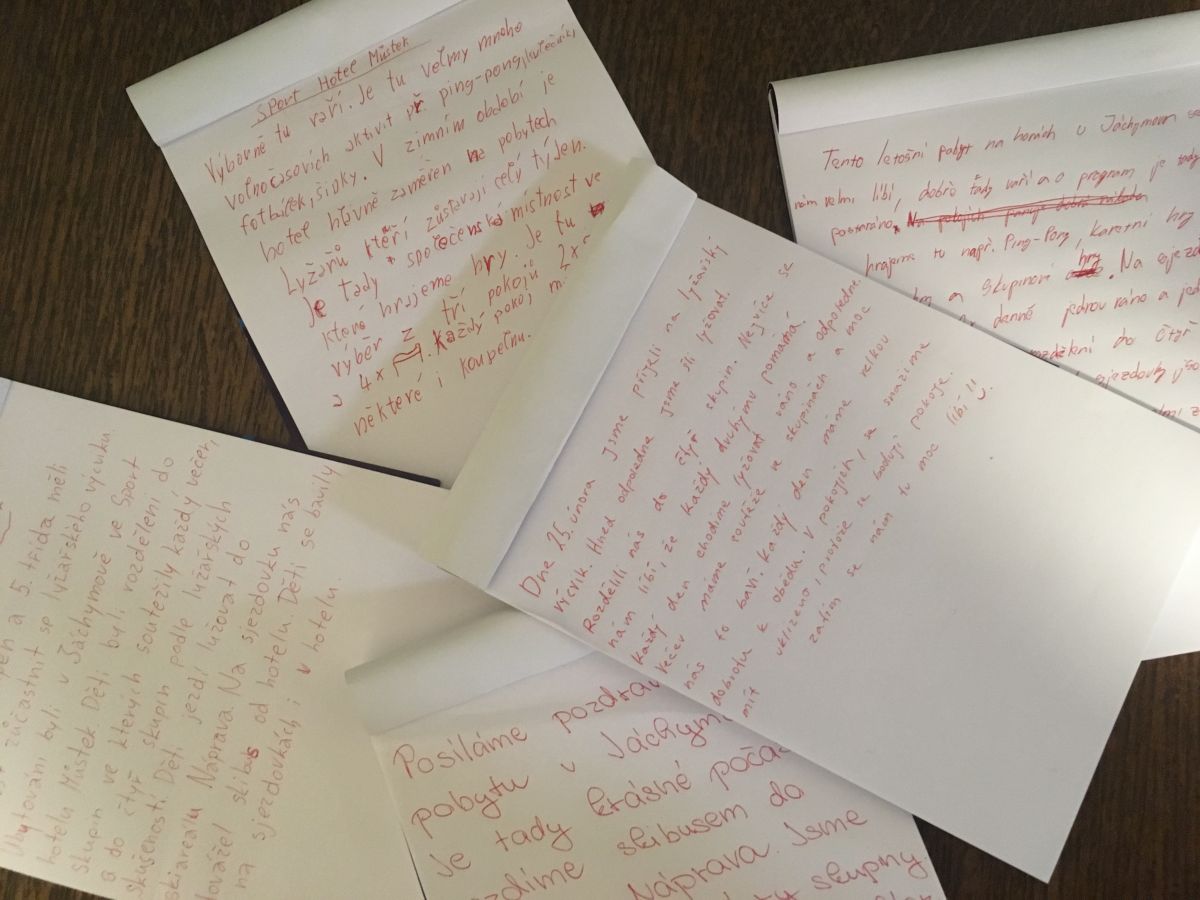 Sport Hotel Můstek
Výborně tu vaří. Je tu velmy mnoho
volnočasovích aktivit př ping-pong, kulečník,
fotbáček, šipky. V zimním období je
hotel hlavně zaměřen na pobytech
Lyžařů kteří zůstavají celý týden.
Je tady společenská místnost ve
které hrajeme hry. Je tu
výběr z tří pokojů 2x
4x . Každý pokoj
některé i koupelnu.
Tento letošní pobyt na horách v Jáchymově se
nám velmi líbí, dobře tády vaří a o program je tady
postaráno.
hrajeme tu např. Ping-Pong, karetní hry
a skupinové hry. Na
denně jednou ráno a
do čtyř
Dne 25. února jsme přijeli na lyžařský
výcvik. Hned odpoledne jsme šli lyžovat.
Rozdělili nás do čtyř skupin. Nejvíce se
nám líbí, že každý druhýmu pomáhá.
Každý den chodíme lyžovat ráno a odpoledne.
Večer máme soutěže ve skupinách a moc
nás to baví. Každý den máme velkou
dobrotu k obědu. V pokojích, se snažíme
mít uklizeno, protože se bodují pokoje.
Zatím se nám tu moc líbí!
a 5. třída měli
zúčastnit se lyžařského výcviku.
Ubytováni byli v Jáchymově ve Sport
hotelu Můstek. Děti byli rozděleni do
skupin ve kterých soutěžily každý večer,
a do čtyř skupin podle lyžařských
zkušeností. Děti jezdí lyžovat do
skiarealu Náprava. Na sjezdovku nás
skibus od hotelu. Děti se bavily
na sjezdovkách i v hotelu.
Posíláme
pobytu v
Je tady krásné
skibusem do
Náprava. Jsme
skupiny.